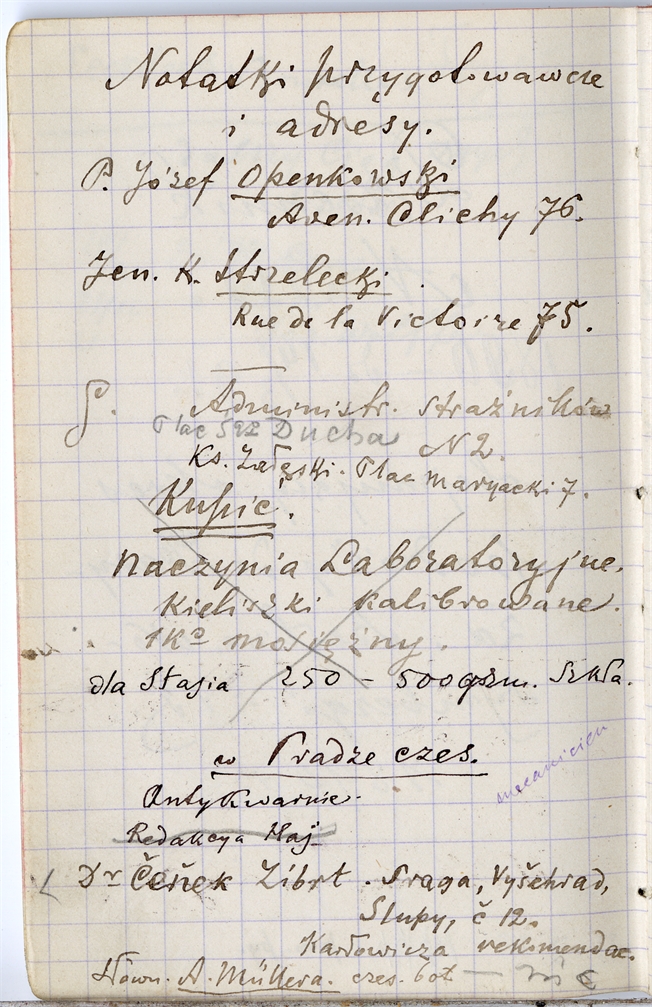 Notatki przygotowawcze
i adresy.
P. Józef Openkowski
Aven. Clichy 76.
Jen. K. Strzelecki
Rue de la Victoire 75.
Administr. Strażników
Plac Śgo Ducha N 2.
Ks. Załęski. Plac maryacki 7.
Kupić.
Naczynia Laboratoryjne.
Kieliszki Kalibrowane.
mosiężny.
dla Stasia 250 – 500 grm. Szkła.
w Pradze czes.
mecanicien
Antykwarnie.
Redakcya Máj
Dr Čeněk Zíbrt. Praga, Vyšehrad,
Slupy, č 12.
Karłowicza rekomendac.
Słown. A. Müllera. czes. bot —